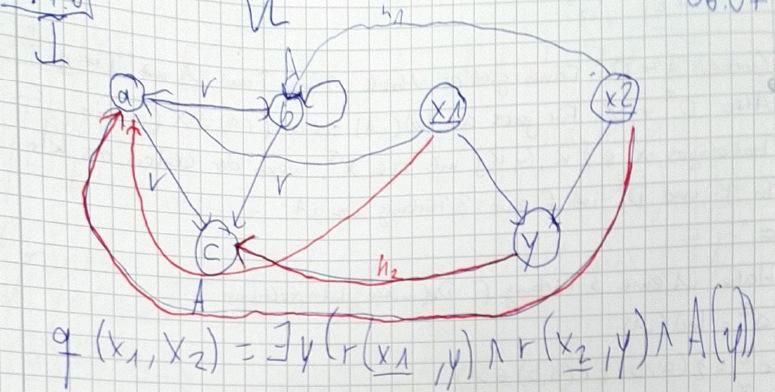 I
h1
a r b x1 x2
r r
c y
h2
A
q (x1, x2) = ∃y (r(x1, y) ∧ r(x2, y) ∧ A(y))